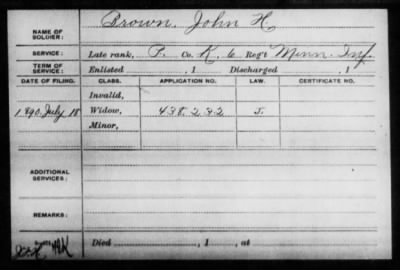 NAME OF SOLDIER: Brown, John H.
SERVICE: Late rank, P. Co. K, 6 Reg't Minn. Inf.
TERM OF SERVICE: Enlisted , 1 Discharged , 1
DATE OF FILING. CLASS. APPLICATION NO. LAW. CERTIFICATE NO.
Invalid,
1890, July 18 Widow, 438.232
Minor,
ADDITIONAL SERVICES:
REMARKS:
Died , 1 , at